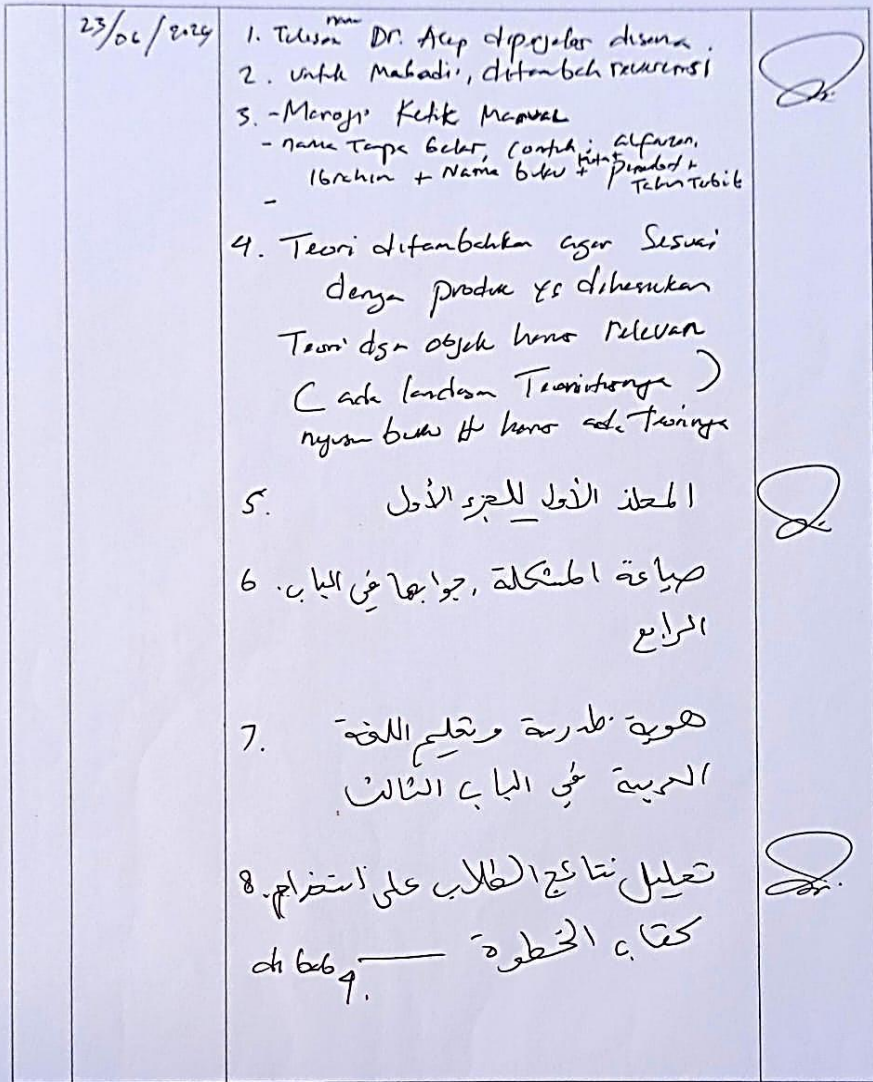 23/06/2024
nama
1. Tulisan Dr. Acep diperjelas disana.
2. untuk Mahadi, ditambah referensi
3. - Maroji' Ketik Manual
- nama Tanpa Gelar, Contoh: alfauzan,
Ibrahim + Nama buku + kota + Penerbit +
Tahun Terbit
-
4. Teori ditambahkan agar Sesuai
dengan produk yg dihasilkan
Teori dgn objek harus relevan
( ada landasan Teoritisnya )
nyusun buku itu harus ada Teorinya
5. المجلد الأول للجزء الأول
6. صياغة المشكلة، جوابها في الباب
الرابع
7. هوية المدرسة وتعليم اللغة
العربية في الباب الثالث
8. تحليل نتائج الطلاب على استخدام
كتاب الخطوة — di bab 4.